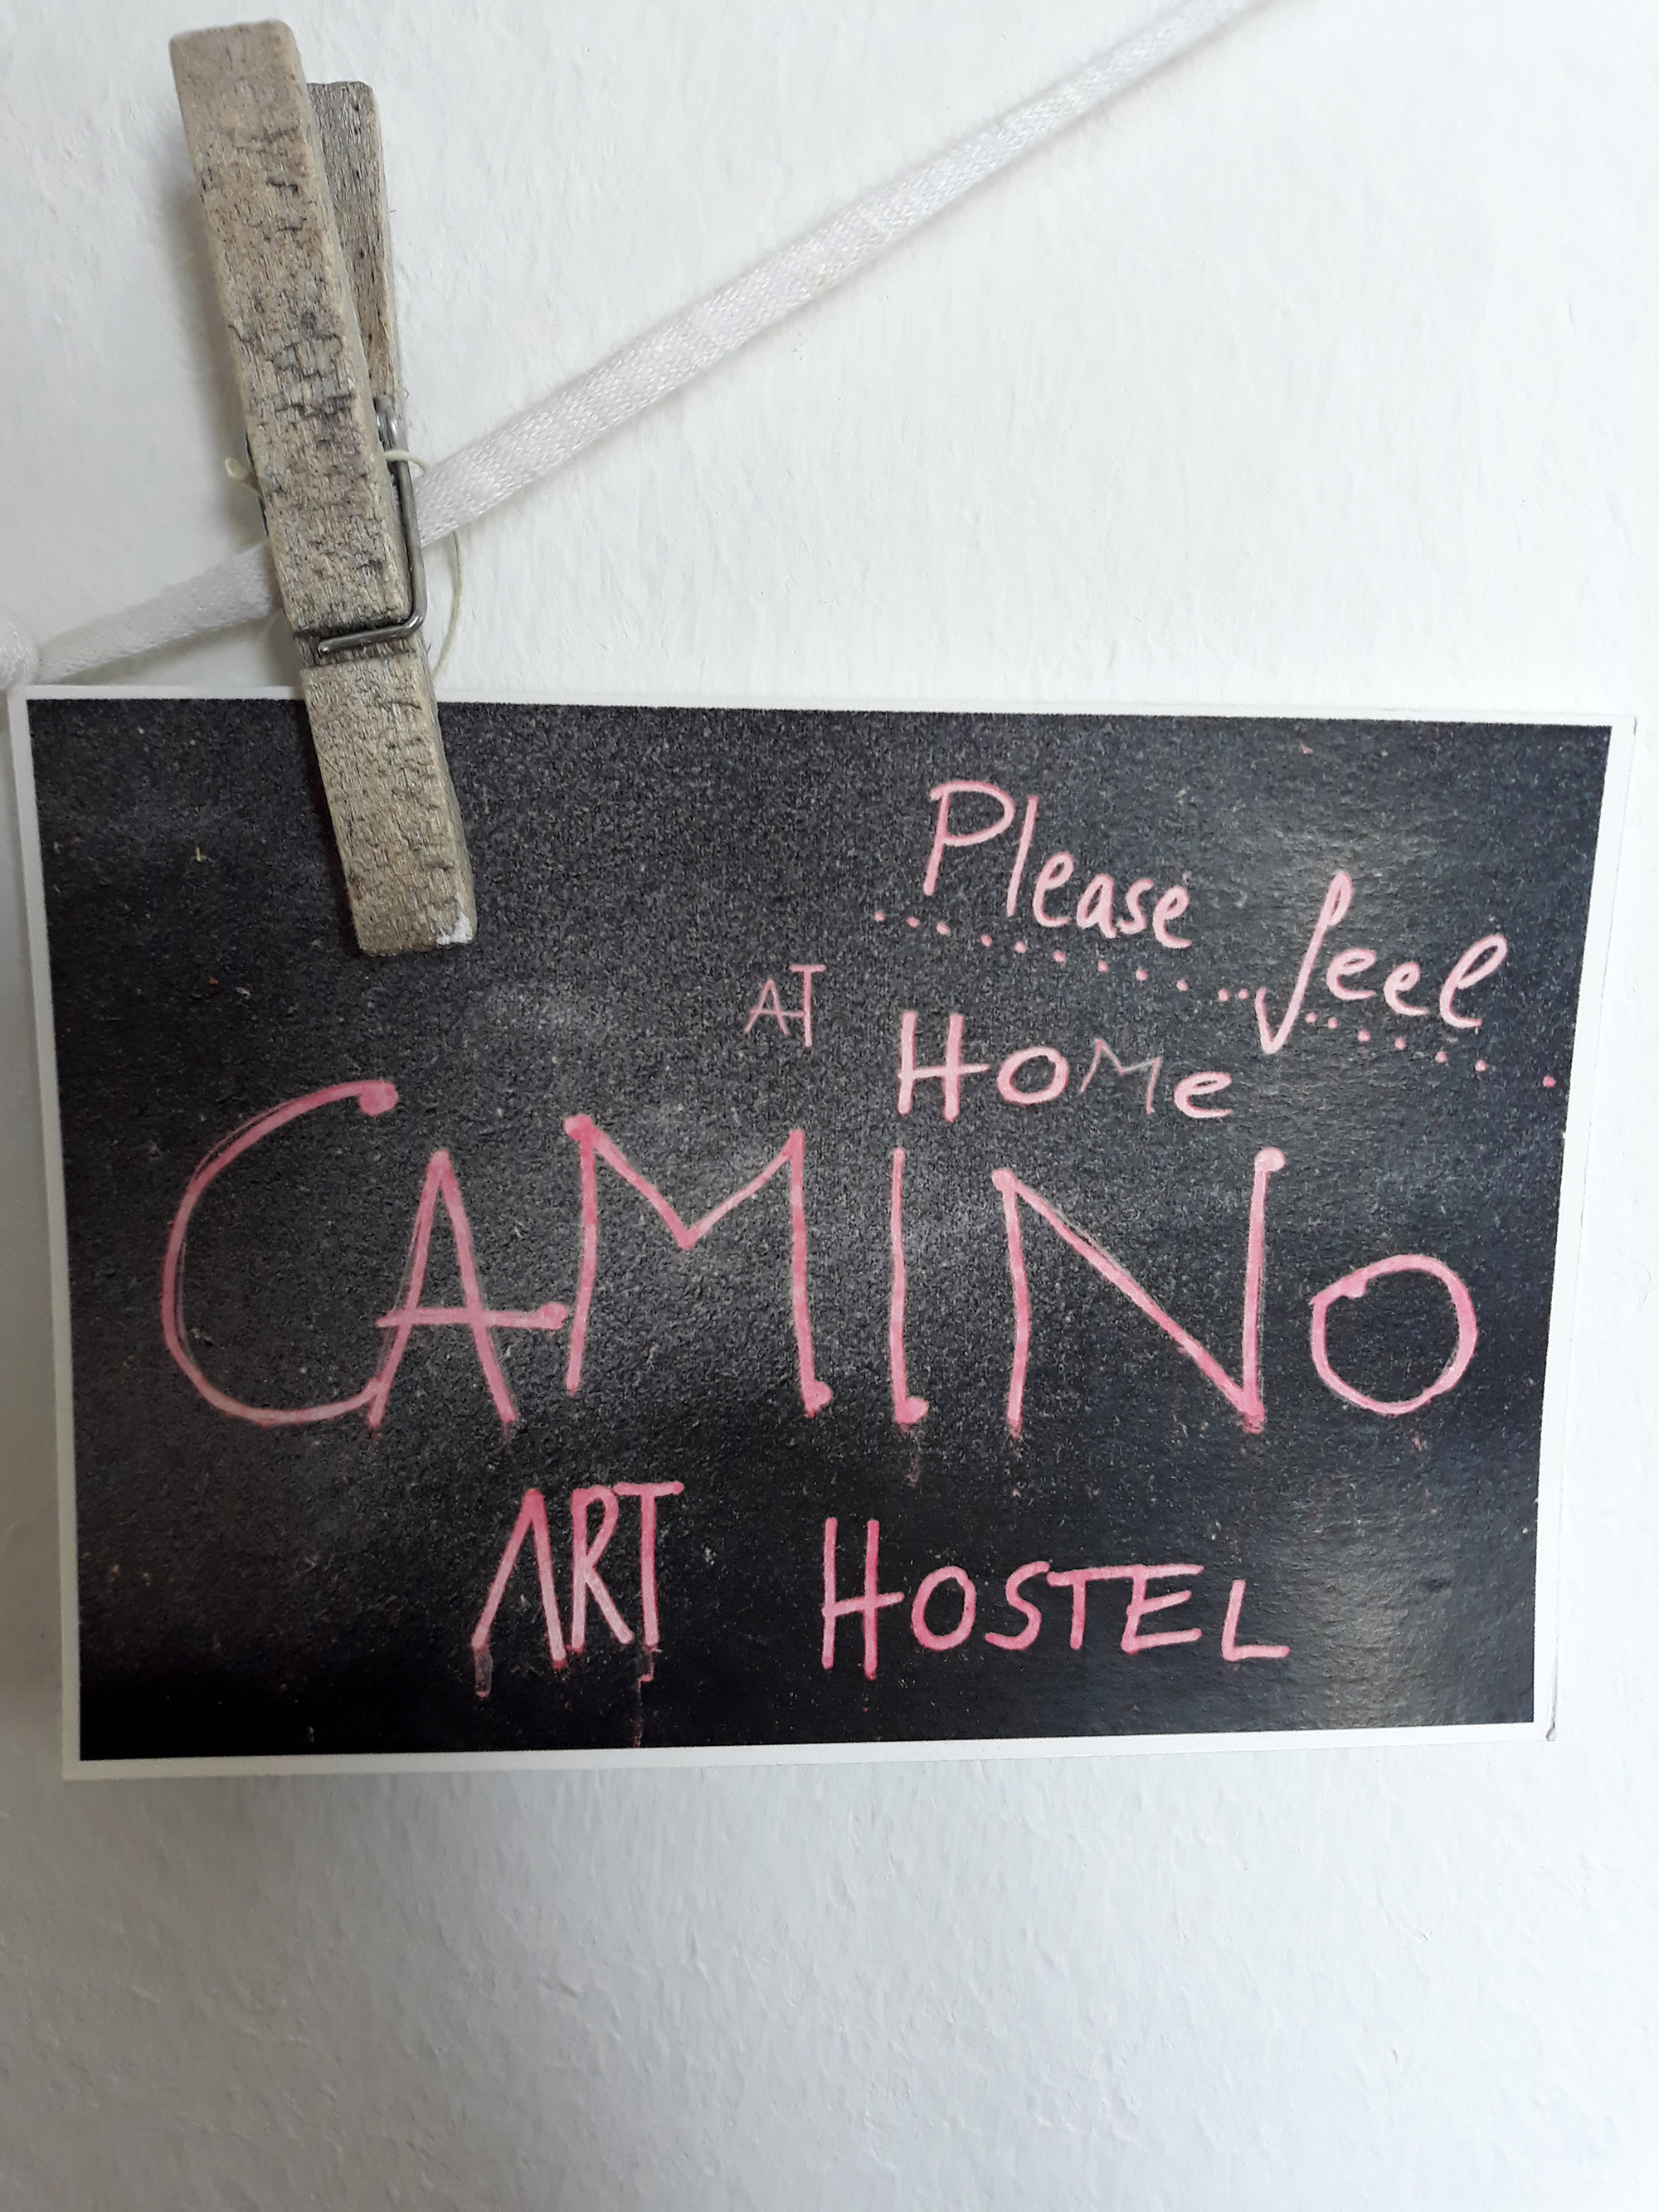 Please feel
AT HOMe
CAMINO
ART HOSTEL